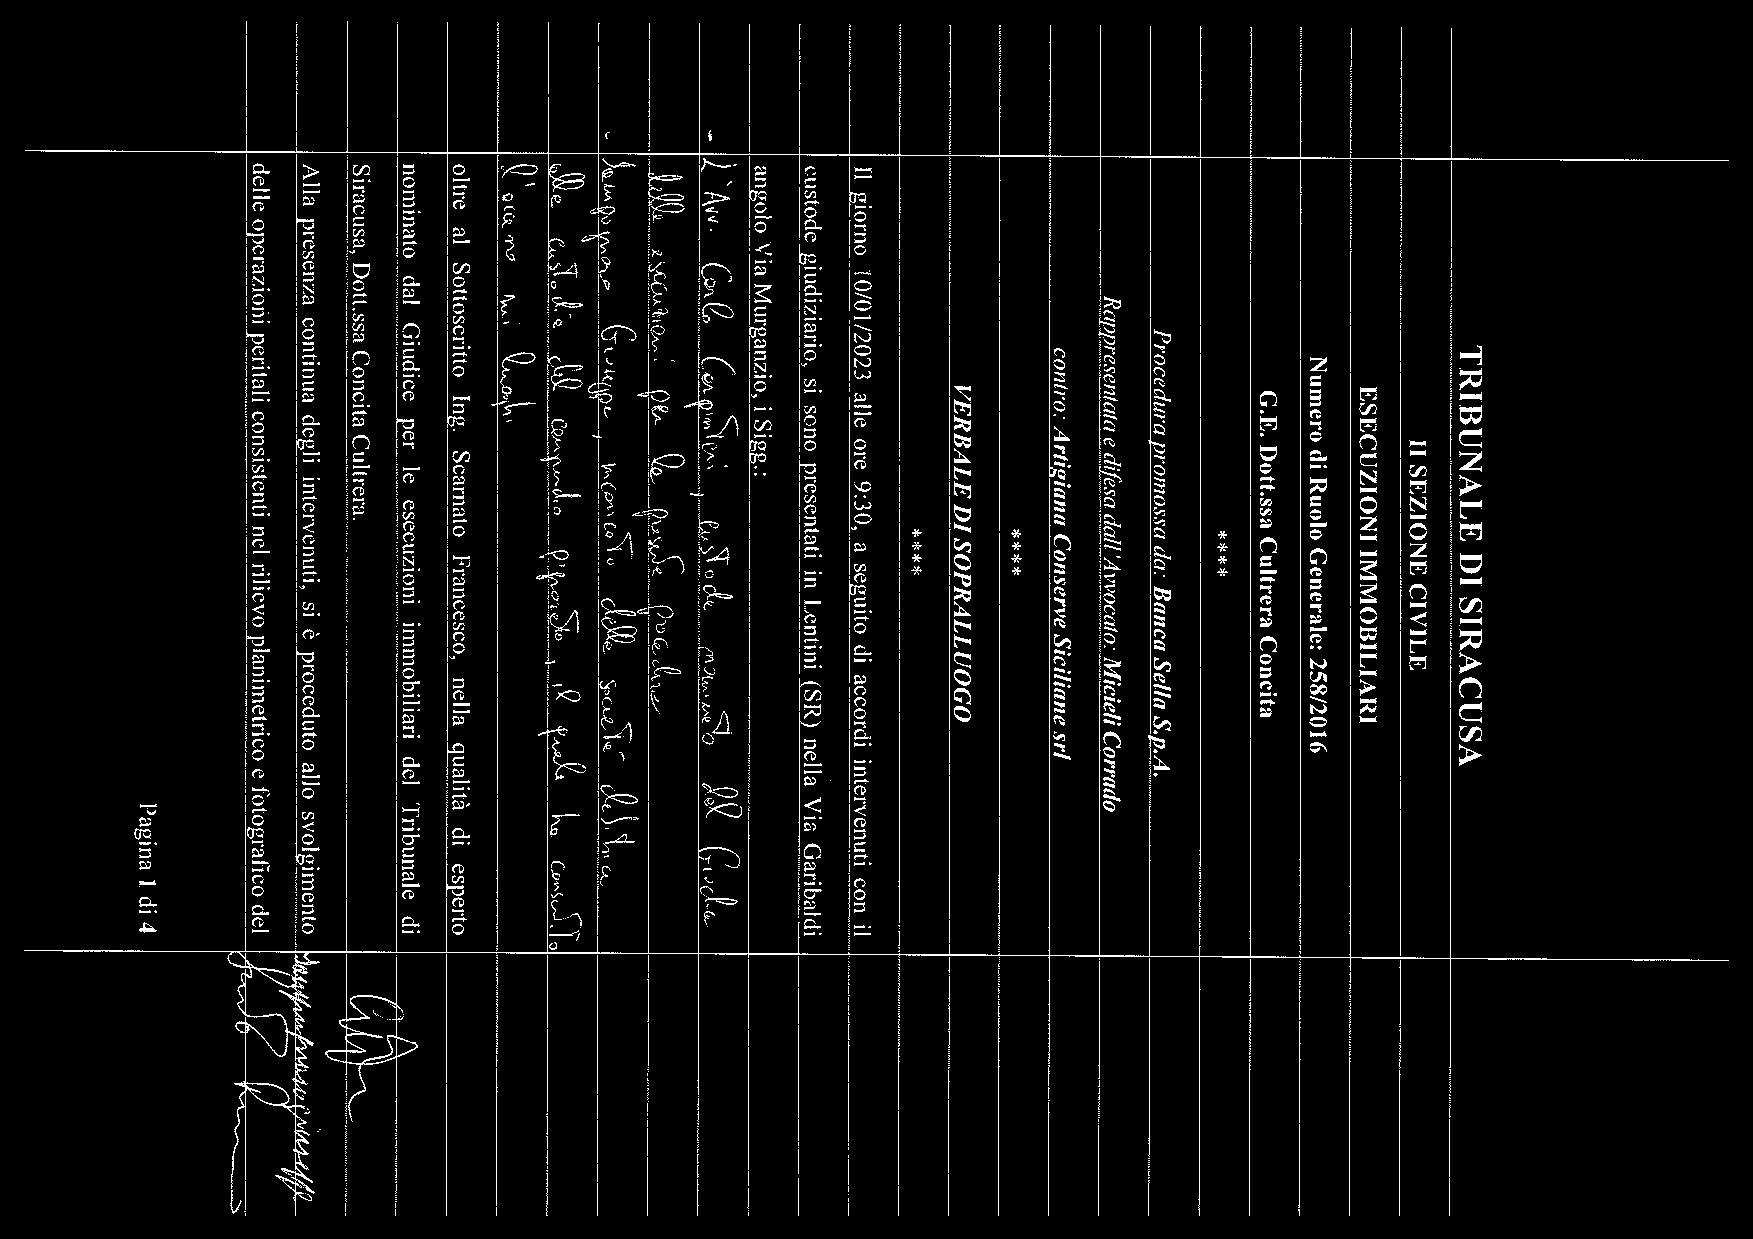 TRIBUNALE DI SIRACUSA
II SEZIONE CIVILE
ESECUZIONI IMMOBILIARI
Numero di Ruolo Generale: 258/2016
G.E. Dott.ssa Cultrera Concita
****
Procedura promossa da: Banca Sella S.p.A.
Rappresentata e difesa dall'Avvocato: Micieli Corrado
contro: Artigiana Conserve Siciliane srl
****
VERBALE DI SOPRALLUOGO
****
Il giorno 10/01/2023 alle ore 9:30, a seguito di accordi intervenuti con il
custode giudiziario, si sono presentati in Lentini (SR) nella Via Garibaldi
angolo Via Murganzio, i Sigg.:
- L'Avv. Carlo custode nominato dal Giudice
delle esecuzioni per la presente procedura
- Giuseppe, incaricato della società
alla custodia del compendio pignorato, il quale ha consentito
l'accesso nei luoghi
oltre al Sottoscritto Ing. Scarnato Francesco, nella qualità di esperto
nominato dal Giudice per le esecuzioni immobiliari del Tribunale di
Siracusa, Dott.ssa Concita Cultrera.
Alla presenza continua degli intervenuti, si è proceduto allo svolgimento
delle operazioni peritali consistenti nel rilievo planimetrico e fotografico del
Pagina 1 di 4